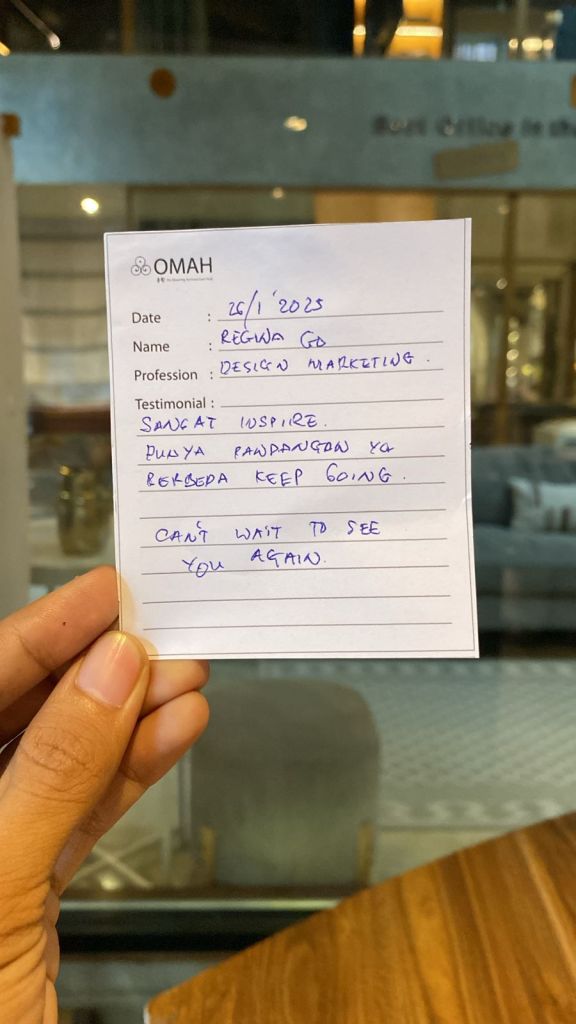 OMAH
Date : 26/1'2025
Name : REGINA GO
Profession : DESIGN MARKETING.
Testimonial :
SANGAT INSPIRE.
PUNYA PANDANGAN YG
BERBEDA KEEP GOING.
CAN'T WAIT TO SEE
YOU AGAIN.